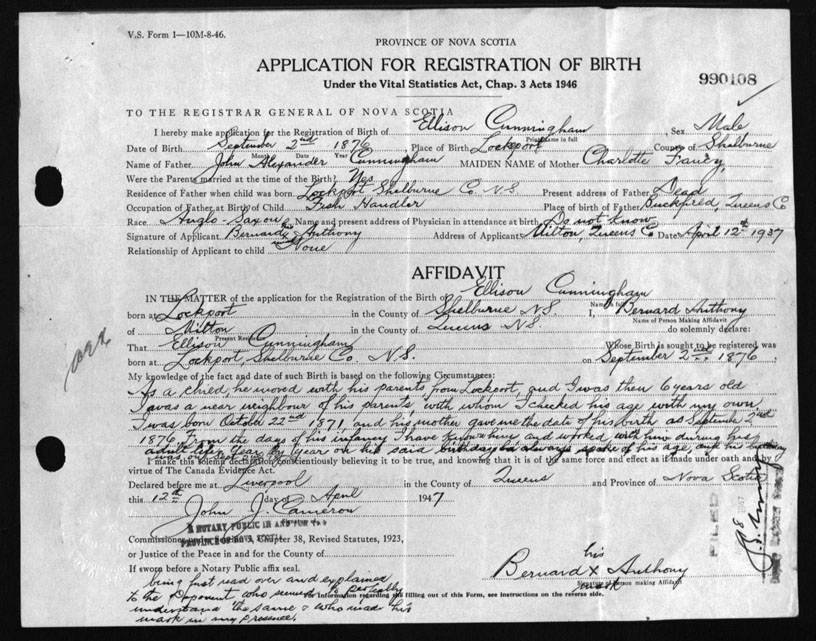 V.S. Form 1—10M-8-46.
PROVINCE OF NOVA SCOTIA
APPLICATION FOR REGISTRATION OF BIRTH
Under the Vital Statistics Act, Chap. 3 Acts 1946
990108
TO THE REGISTRAR GENERAL OF NOVA SCOTIA
I hereby make application for the Registration of Birth of Ellison Cunningham, Sex Male
Print Name in full
Date of Birth September 2nd 1876, Place of Birth Lockeport County of Shelburne
Month Date Year
Name of Father John Alexander Cunningham MAIDEN NAME of Mother Charlotte
Were the Parents married at the time of the Birth? Yes
Residence of Father when child was born Lockport Shelburne Co N.S Present address of Father Dead
Occupation of Father at Birth of Child Fish Handler Place of birth of Father Queens Co
Race Anglo-Saxon Name and present address of Physician in attendance at birth Do not know
Signature of Applicant Bernard his x mark Anthony Address of Applicant Milton, Queens Co Date April 12th 1937
Relationship of Applicant to child None
AFFIDAVIT
IN THE MATTER of the application for the Registration of the Birth of Ellison Cunningham
Name in full
born at Lockport in the County of Shelburne N.S. I, Bernard Anthony
Name of Person Making Affidavit
of Milton in the County of Queens N.S. do solemnly declare:
Present Residence
That Ellison Cunningham Whose Birth is sought to be registered was
born at Lockport, Shelburne Co. N.S. on September 2nd, 1876
My knowledge of the fact and date of such Birth is based on the following Circumstances:
As a child, he moved with his parents from Lockport, and I was then 6 years old
I was a near neighbour of his parents, with whom I checked his age with my own
I was born October 22nd 1871, and his mother gave me the date of his birth as September 2nd
1876. From the days of his infancy I have known him and worked with him during his
adult life, year by year on his said birthday always spoke of his age, and his
I make this solemn declaration conscientiously believing it to be true, and knowing that it is of the same force and effect as if made under oath and by
virtue of The Canada Evidence Act.
Declared before me at Liverpool in the County of Queens and Province of Nova Scotia
this 12th day of April 1947
John J. Cameron
A NOTARY PUBLIC IN AND FOR THE
PROVINCE OF NOVA SCOTIA
Commissioner under Chapter 38, Revised Statutes, 1923,
or Justice of the Peace in and for the County of
If sworn before a Notary Public affix seal.
Bernard his x mark Anthony
Signature of Person making Affidavit
being first read over and explained
to the Deponent who seemed to perfectly
For information regarding the filling out of this Form, see instructions on the reverse side.
understand the same & who made his
mark in my presence.
FILED